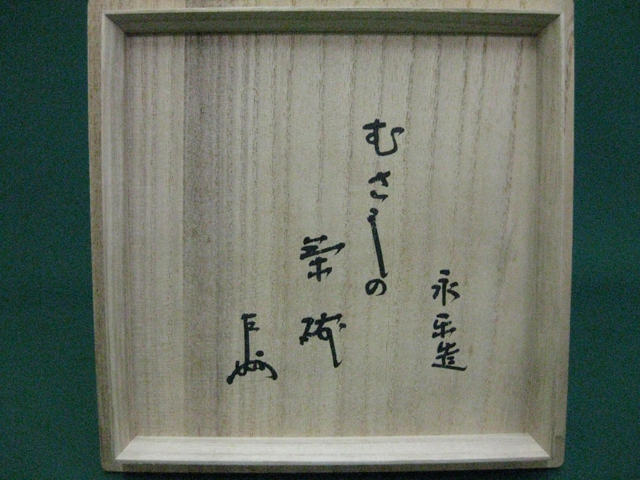 永楽造
むさしの
茶碗